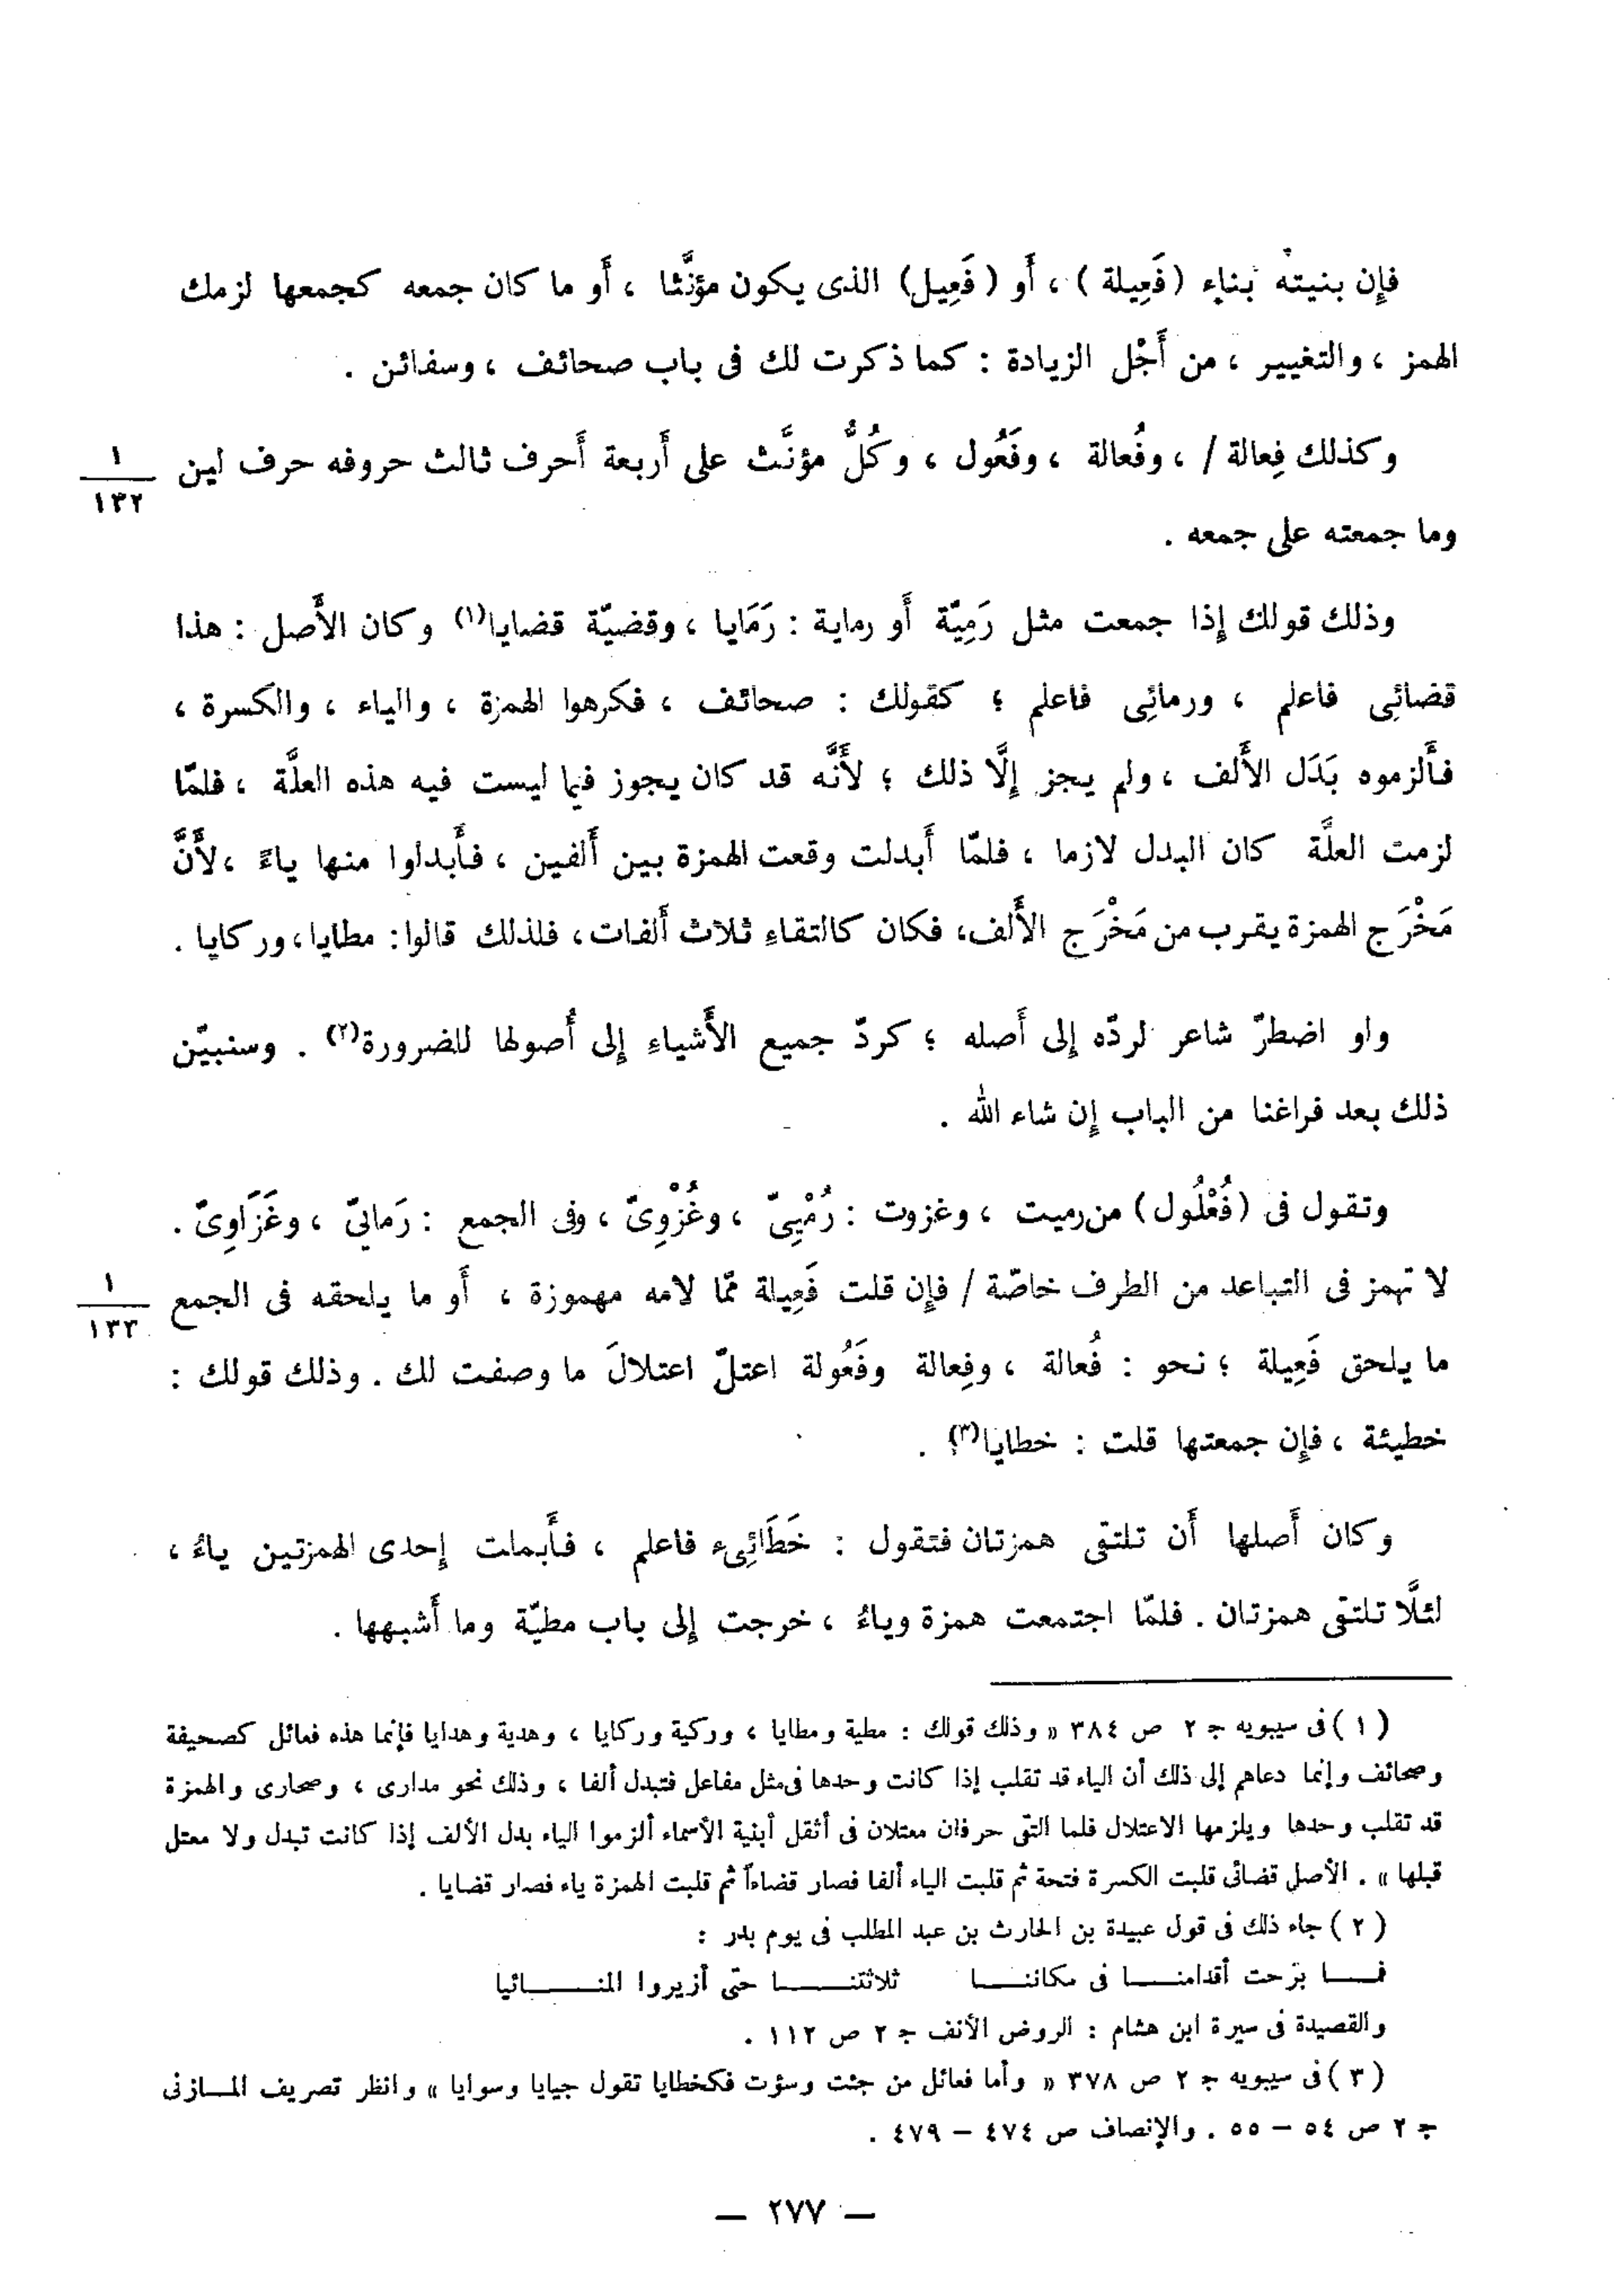 فإِن بنيته بناءِ (فَعِيلة) ، أَو (فَعِيل) الذى يكون مؤنَّثا ، أَو ما كان جمعه كجمعها لزمك
الهمز ، والتغيير ، من أَجْل الزيادة : كما ذكرت لك فى باب صحائف ، وسفائن .
وكذلك فِعالة / ، وفُعالة ، وفَعُول ، وكُلُّ مؤنَّث على أَربعة أَحرف ثالث حروفه حرف لين
١
١٣٢
وما جمعته على جمعه .
وذلك قولك إِذا جمعت مثل رَمِيّة أَو رماية : رَمَايا ، وقضيّة قضايا(١) وكان الأَصل : هذا
قضائِى فاعلم ، ورمائِى فاعلم ؛ كقولك : صحائف ، فكرهوا الهمزة ، والياء ، والكسرة ،
فأَلزموه بَدَل الأَلف ، ولم يجز إِلَّا ذلك ؛ لأَنَّه قد كان يجوز فيما ليست فيه هذه العلَّة ، فلمّا
لزمت العلَّة كان البدل لازما ، فلمّا أَبدلت وقعت الهمزة بين أَلفين ، فأَبدلوا منها ياءً ، لأَنَّ
مَخْرَج الهمزة يقرب من مَخْرَج الأَلف، فكان كالتقاءِ ثلاث أَلفات، فلذلك قالوا: مطايا، وركايا .
واو اضطرّ شاعر لردّه إِلى أَصله ؛ كردّ جميع الأَشياءِ إِلى أُصولها للضرورة(٢) . وسنبيّن
ذلك بعد فراغنا من الباب إِن شاء الله .
وتقول فى (فُعْلُول) من رميت ، وغزوت : رُمْيِىّ ، وغُزْوِىّ ، وفى الجمع : رَمانِىّ ، وغَزَاوِىّ .
لا تهمز فى التباعد من الطرف خاصّة / فإِن قلت فَعِيلة ممّا لامه مهموزة ، أَو ما يلحقه فى الجمع
١
١٣٣
ما يلحق فَعِيلة ؛ نحو : فُعالة ، وفِعالة وفَعُولة اعتلّ اعتلالَ ما وصفت لك . وذلك قولك :
خطيئة ، فإِن جمعتها قلت : خطايا(٣) .
وكان أَصلها أَن تلتقى همزتان فتقول : خَطَائِىء فاعلم ، فأَبدلت إِحدى الهمزتين ياءً ،
لئلَّا تلتقى همزتان . فلمّا اجتمعت همزة وياءُ ، خرجت إِلى باب مطيّة وما أَشبهها .
(١) فى سيبويه جـ ٢ ص ٣٨٤ « وذلك قولك : مطية ومطايا ، وركية وركايا ، وهدية وهدايا فإنما هذه فعائل كصحيفة
وصحائف وإنما دعاهم إلى ذلك أن الياء قد تقلب إذا كانت وحدها فى مثل مفاعل فتبدل ألفا ، وذلك نحو مدارى ، وصحارى والهمزة
قد تقلب وحدها ويلزمها الاعتلال فلما التقى حرفان معتلان فى أثقل أبنية الأسماء ألزموا الياء بدل الألف إذا كانت تبدل ولا معتل
قبلها » . الأصل قضائى قلبت الكسرة فتحة ثم قلبت الياء ألفا فصار قضاءا ثم قلبت الهمزة ياء فصار قضايا .
(٢) جاء ذلك فى قول عبيدة بن الحارث بن عبد المطلب فى يوم بدر :
فمــا برّحت أقدامنــا فى مكاننــا ثلاثتنــا حتى أزيروا المنــائيا
والقصيدة فى سيرة ابن هشام : الروض الأنف جـ ٢ ص ١١٢ .
(٣) فى سيبويه جـ ٢ ص ٣٧٨ « وأما فعائل من جئت وسؤت فكخطايا تقول جيايا وسوايا » وانظر تصريف المــازنى
جـ ٢ ص ٥٤ – ٥٥ . والإنصاف ص ٤٧٤ – ٤٧٩ .
— ٢٧٧ —